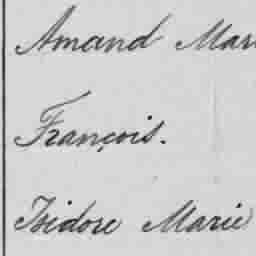 Amand Mari
François.
Isidore Marie